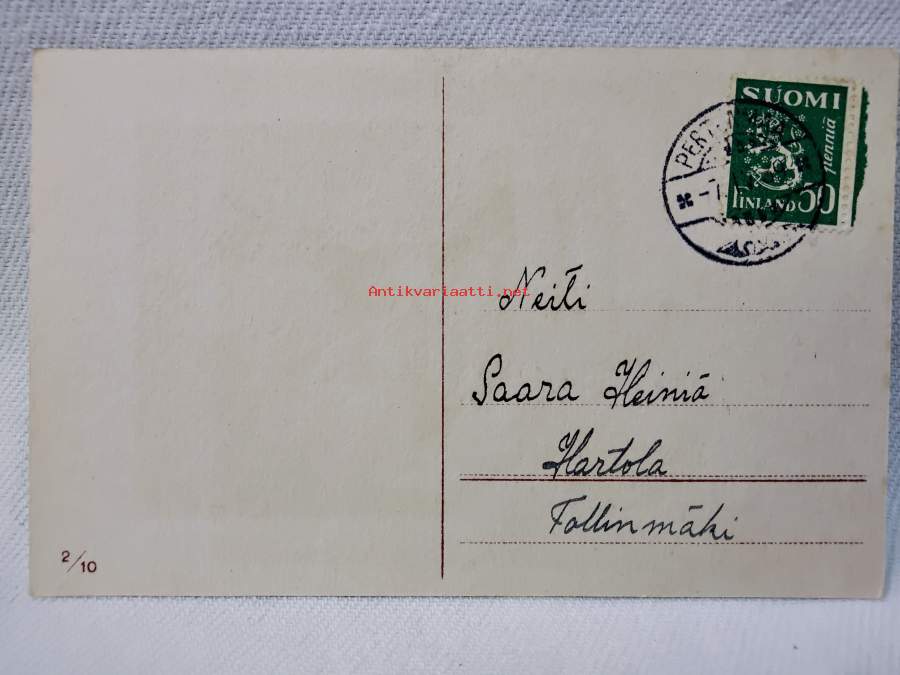 SUOMI
penniä
FINLAND 50
Antikvariaatti.net
Neiti
Saara Heiniä
Hartola
Tollinmäki
2/10